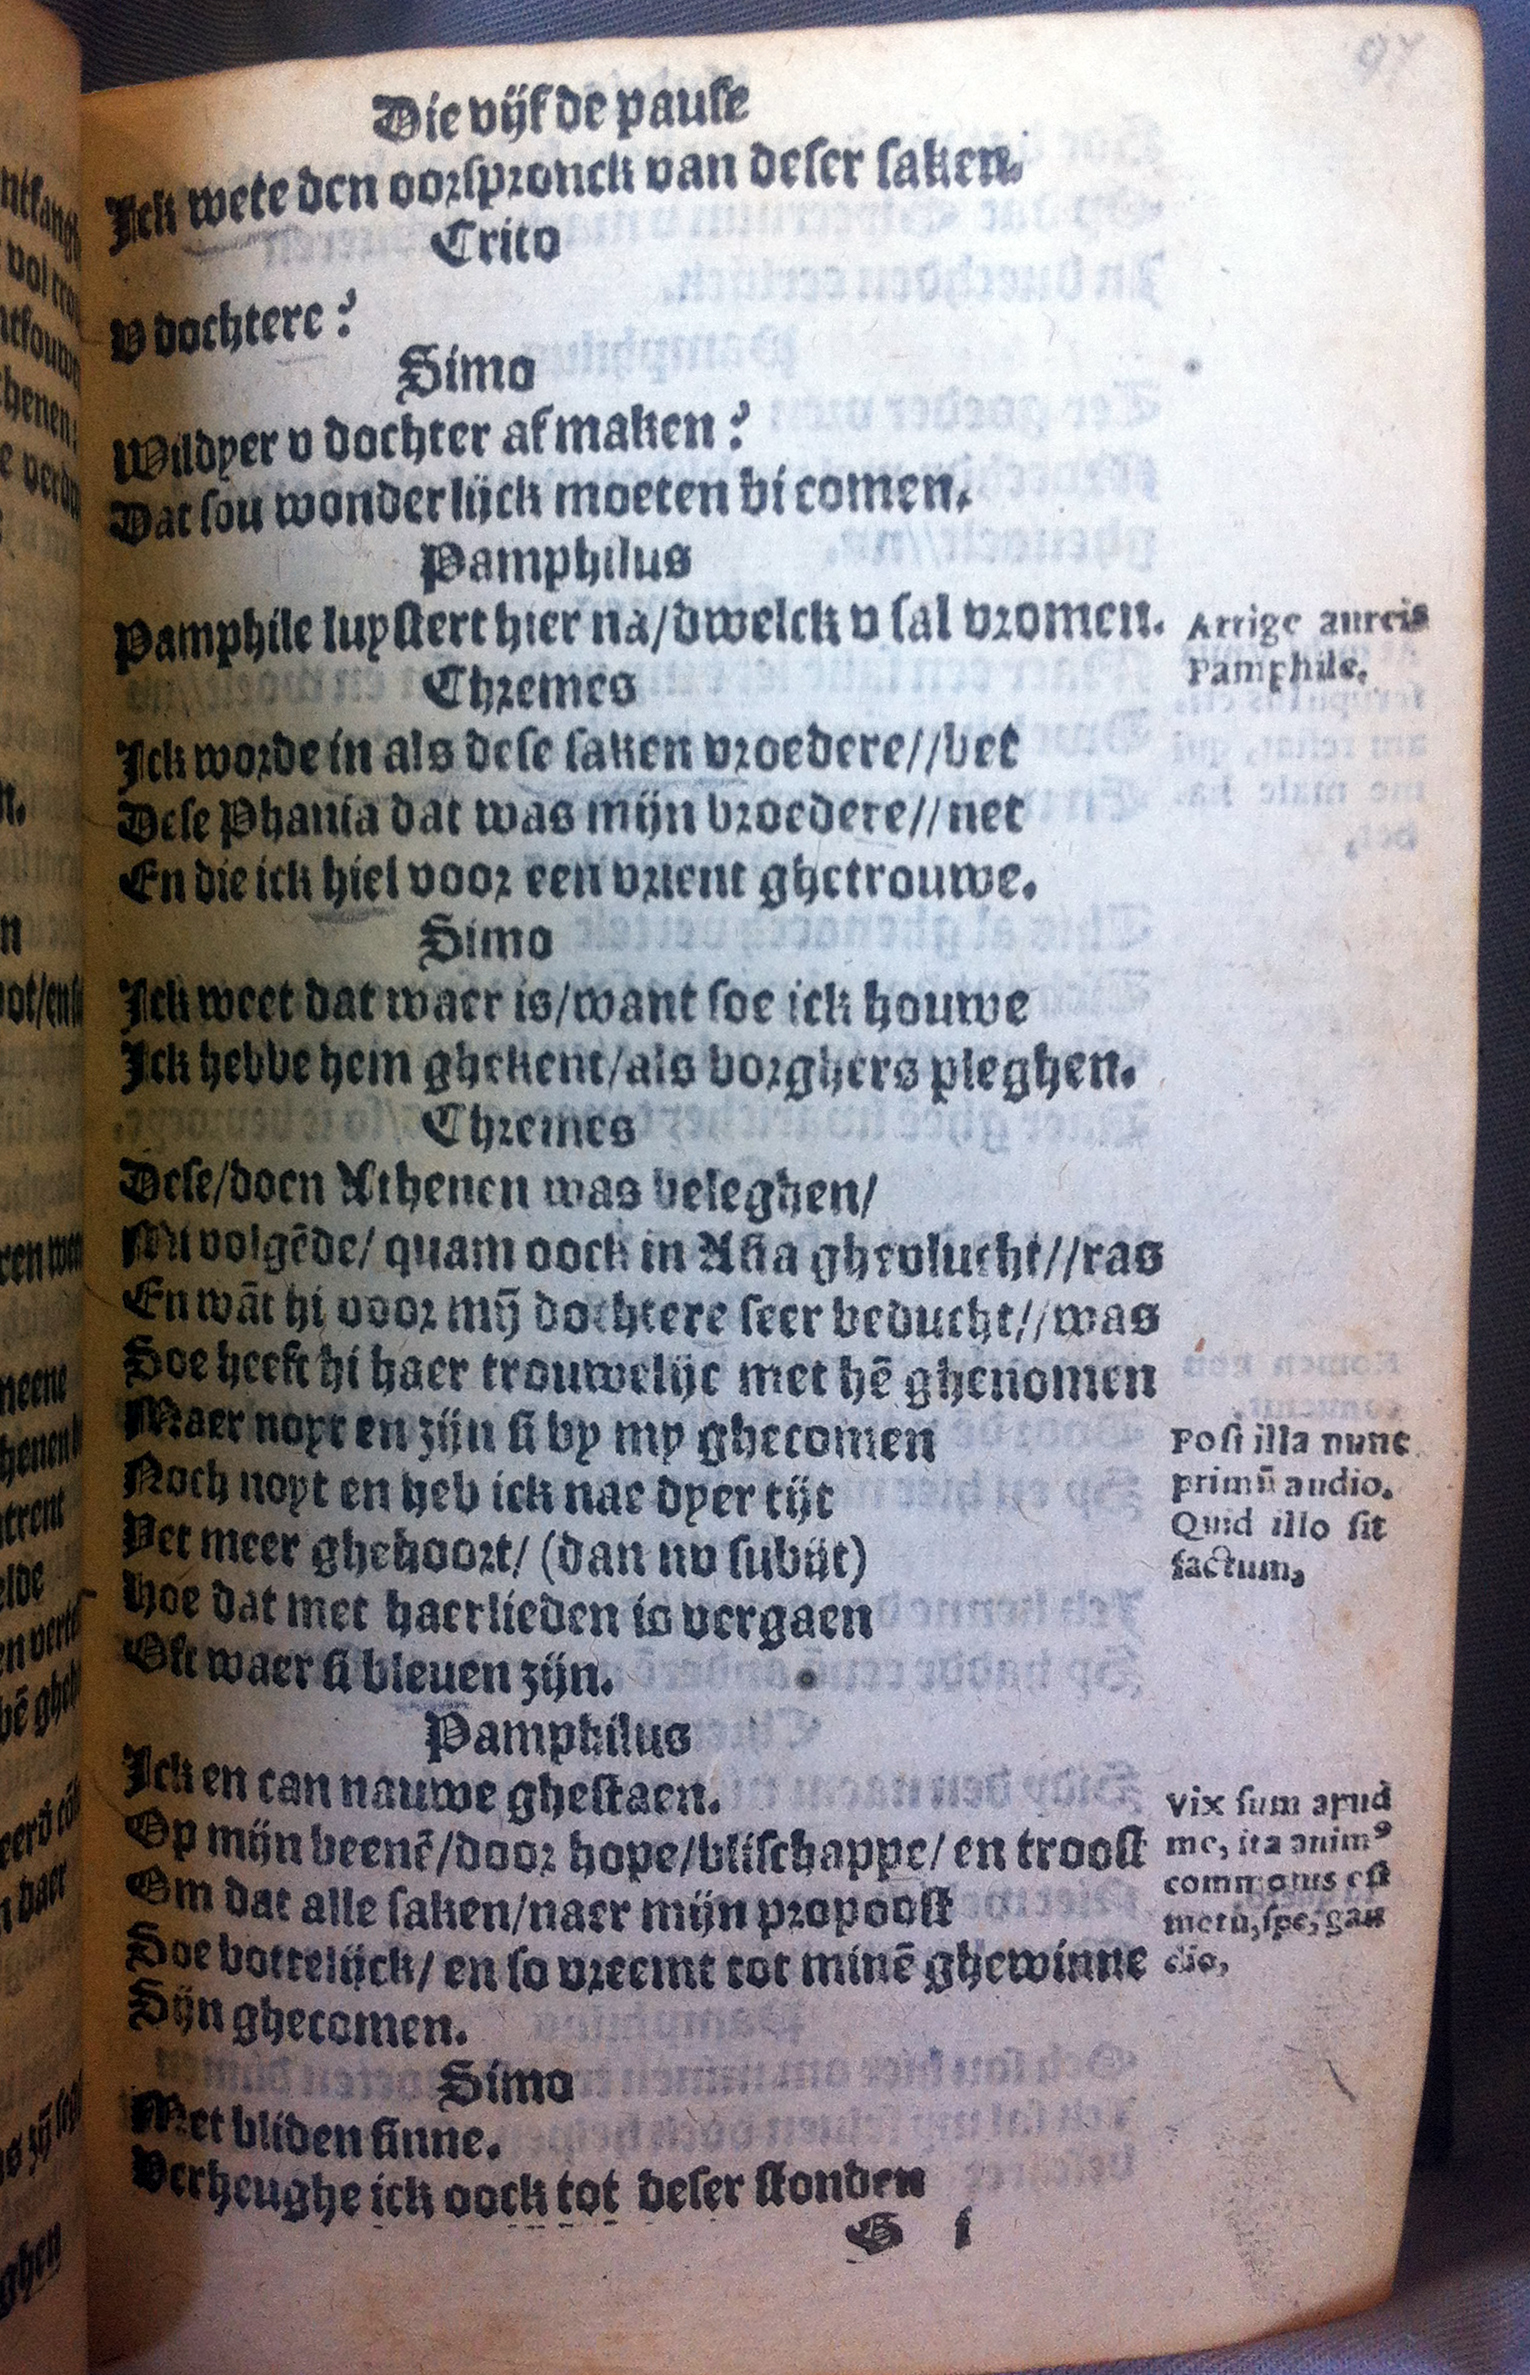 97
Die vijfde pause
Ick wete den oorspronck van deser saken.
Crito
V dochtere?
Simo
Wildyer v dochter af maken?
Dat sou wonderlijck moeten bi comen.
Pamphilus
Pamphile luystert hier na/dwelck v sal vromen.
Arrige aureis
Pamphile.
Chremes
Ick worde in als dese saken vroedere//bet
Dese Phania dat was mijn broedere//net
En die ick hiel voor een vrient ghetrouwe.
Simo
Ick weet dat waer is/want soe ick houwe
Ick hebbe hem ghekent/als borghers pleghen.
Chremes
Dese/doen Athenen was beleghen/
Mi volgēde/ quam oock in Asia ghevlucht//ras
En wāt hi voor mij̄ dochtere seer beducht//was
Soe heeft hi haer trouwelijc met hē ghenomen
Maer noyt en zijn si by my ghecomen
Noch noyt en heb ick nae dyer tijt
Yet meer ghehoort/ (dan nv subijt)
Hoe dat met haerlieden is vergaen
Oft waer si bleuen zijn.
Post illa nunc
primū audio.
Quid illo sit
factum,
Pamphilus
Ick en can nauwe ghestaen.
Op mijn beenē/door hope/blischappe/ en troost
Om dat alle saken/naer mijn propoost
Soe bottelijck/ en so vreemt tot minē ghewinne
Sijn ghecomen.
Vix sum apud
me, ita animꝰ
commotus est
metu, spe, gau
dio,
Simo
Met bliden sinne.
Verheughe ick oock tot deser stonden
G i